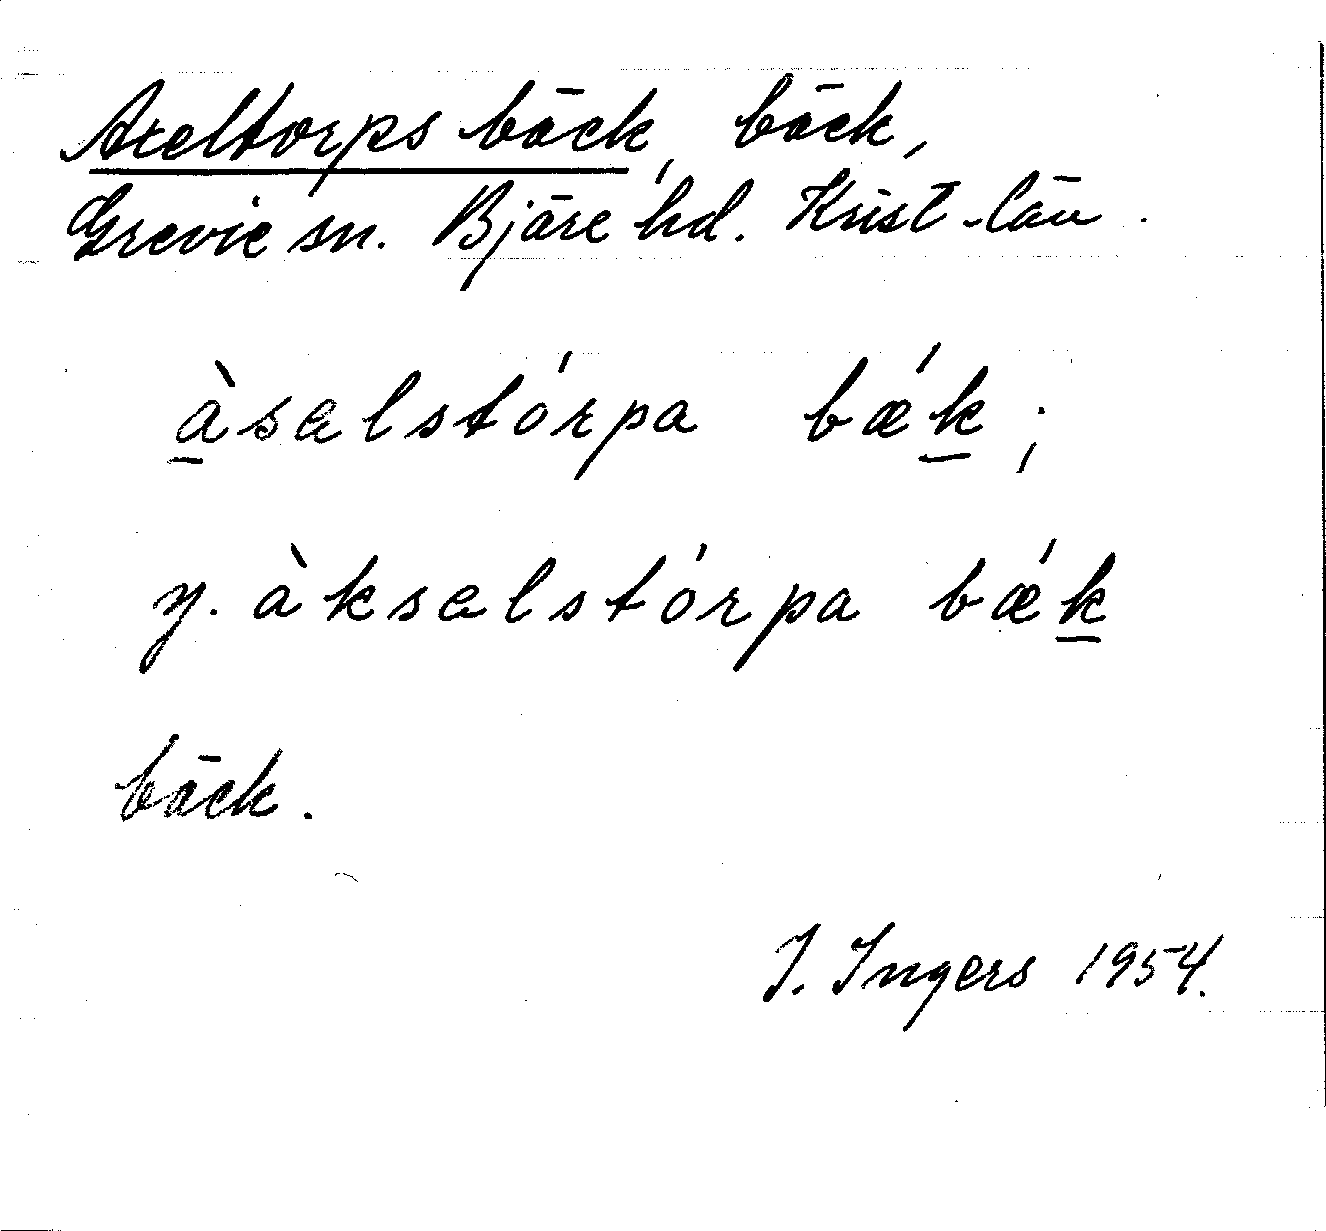 Axeltorps bäck, bäck,
Grevie sn. Bjäre hd. Krist. län.
à̲sɐlstórpa bǽk̲;
y. àksɐlstórpa bǽk̲
bäck.
I. Ingers 1954.